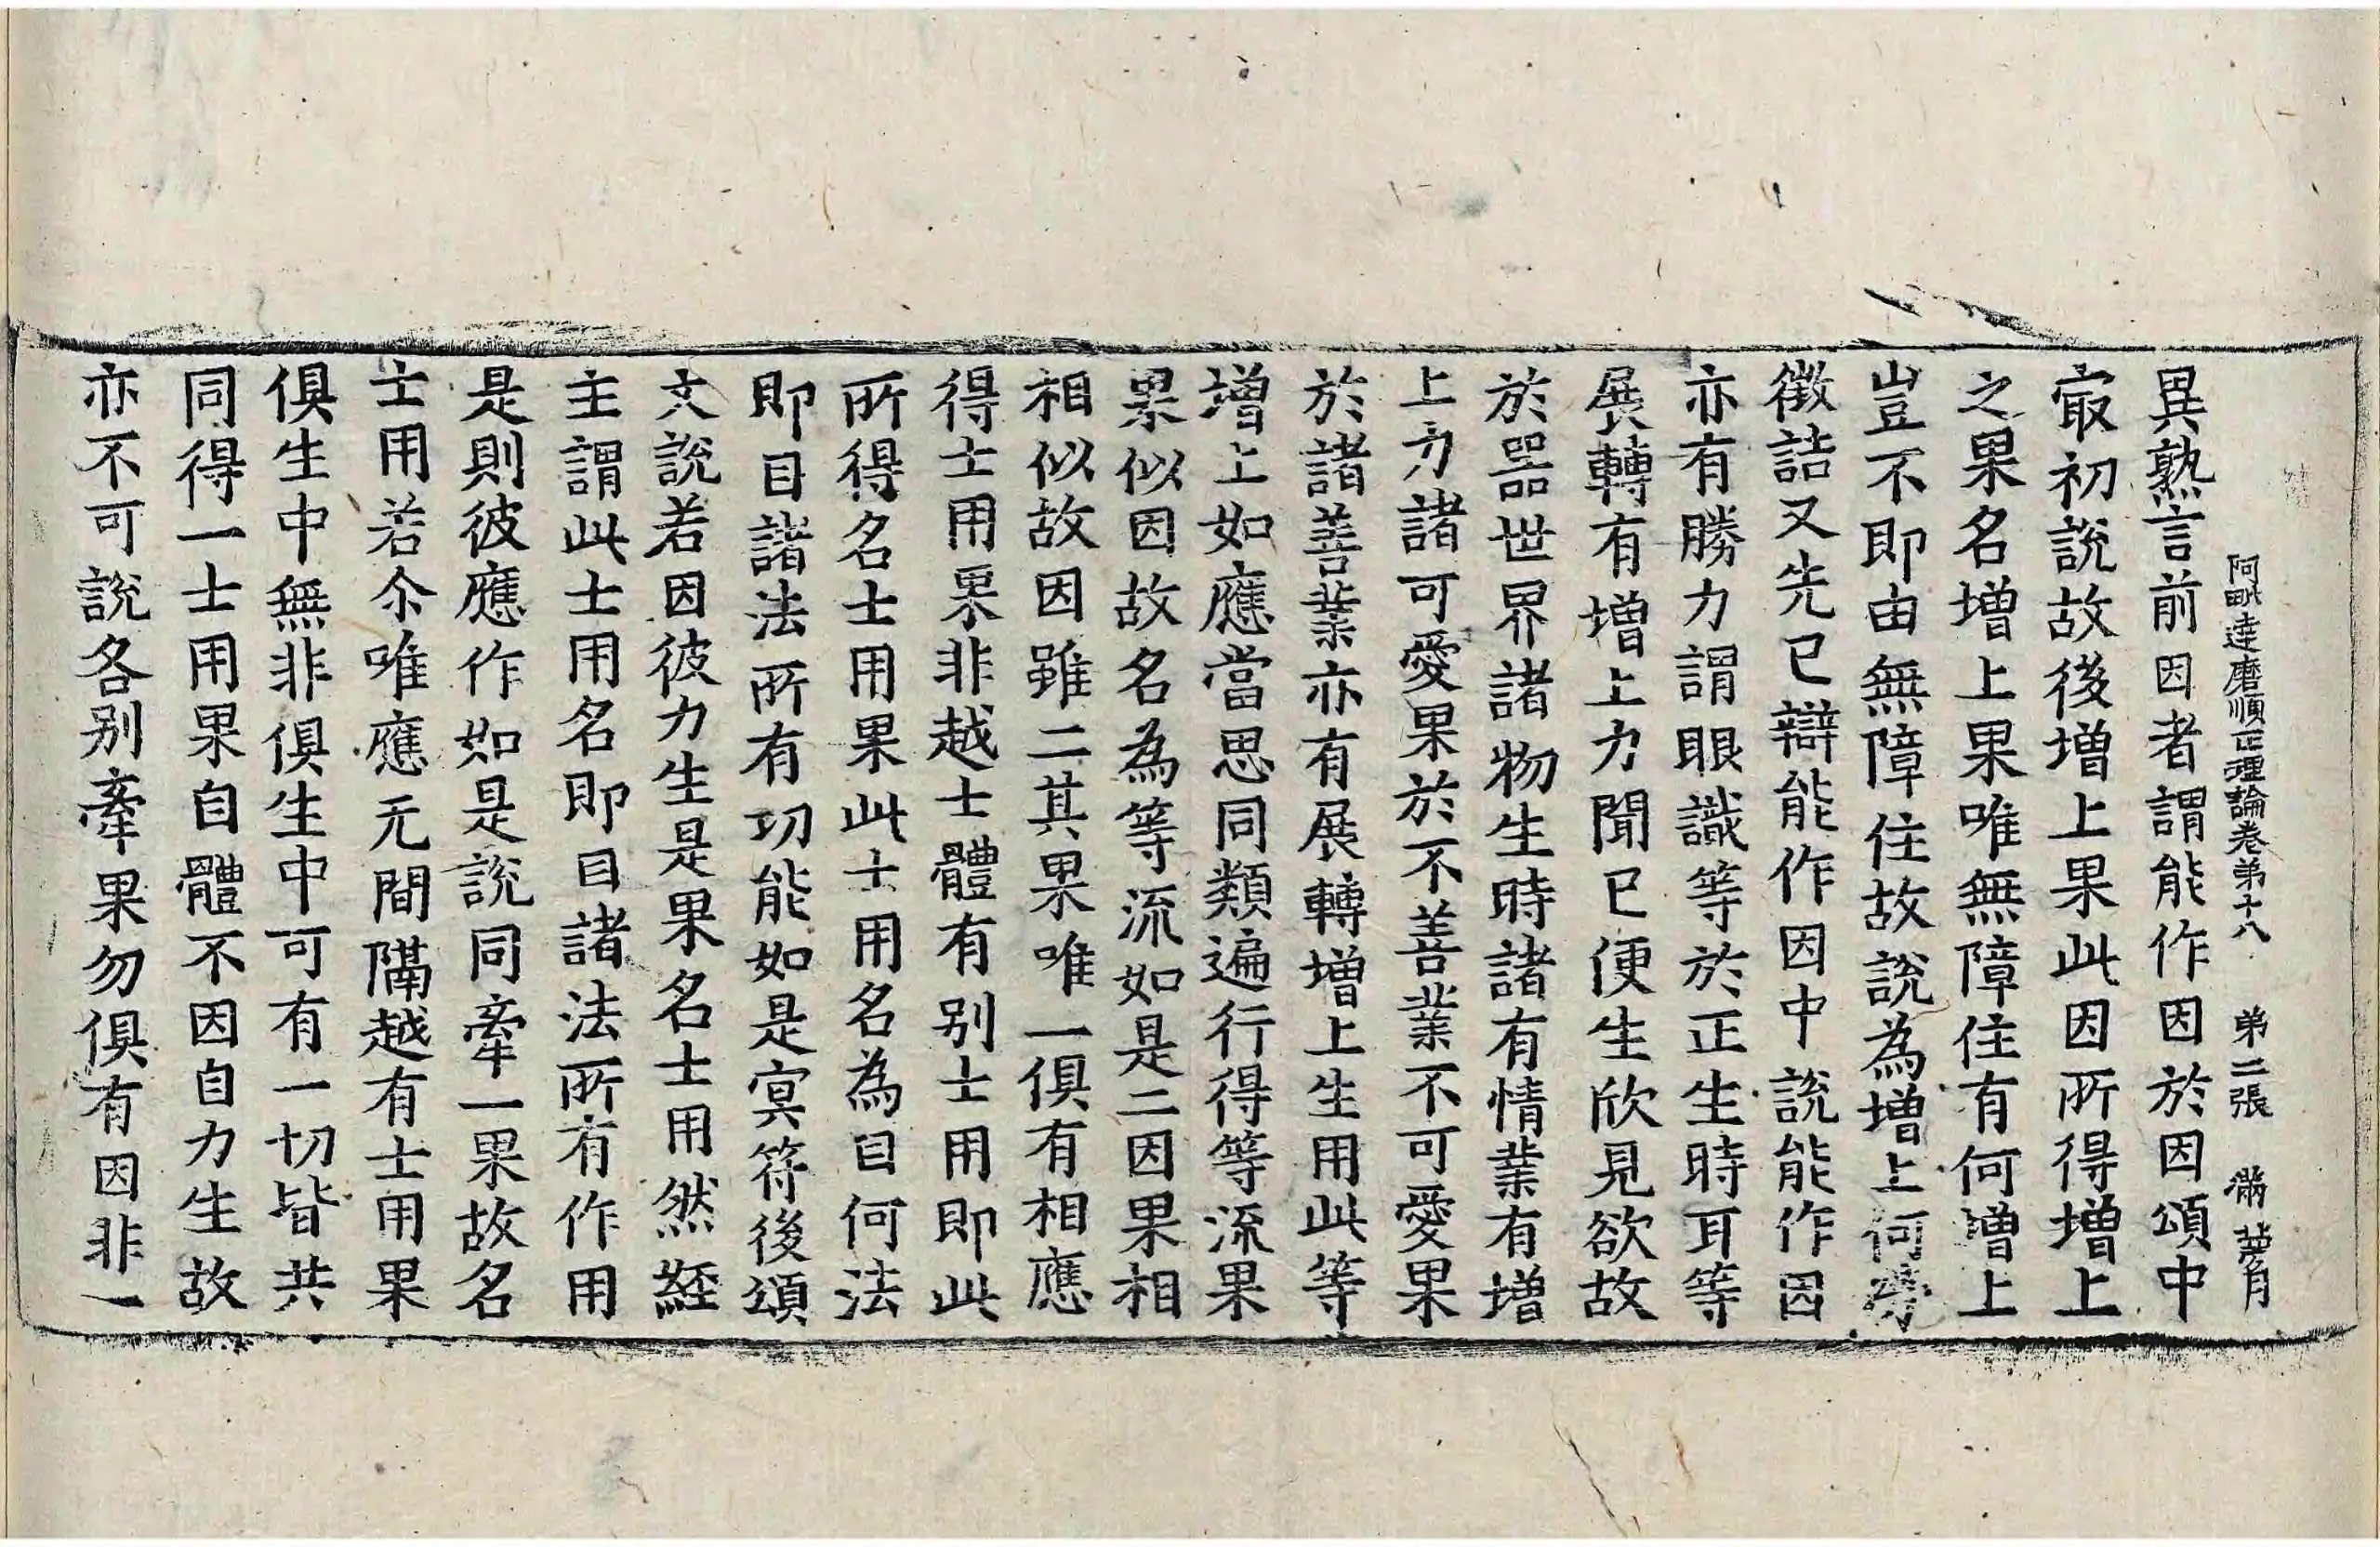 阿毗達磨順正理論卷弟十八 弟二張 滿
異熟言前因者謂能作因於因頌中
㝡初說故後增上果此因所得增上
之果名增上果唯無障住有何增上
豈不即由無障住故說為增上何勞
徵詰又先已辯能作因中說能作因
亦有勝力謂眼識等於正生時耳等
展轉有增上力聞已便生欣見欲故
於器世界諸物生時諸有情業有增
上力諸可愛果於不善業不可愛果
於諸善業亦有展轉增上生用此等
增上如應當思同類遍行得等流果
果似因故名為等流如是二因果相
相似故因雖二其果唯一俱有相應
得士用果非越士體有別士用即此
所得名士用果此士用名為目何法
即目諸法所有功能如是冥符後頌
文說若因彼力生是果名士用然經
主謂此士用名即目諸法所有作用
是則彼應作如是說同牽一果故名
士用若尒唯應无間隔越有士用果
俱生中無非俱生中可有一切皆共
同得一士用果自體不因自力生故
亦不可說各別牽果勿俱有因非一